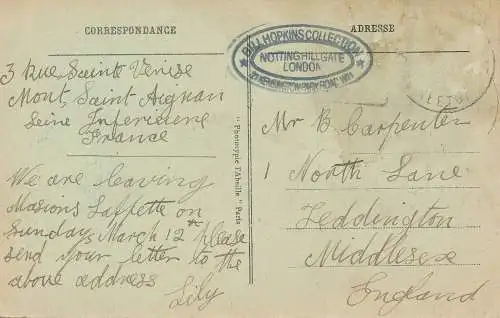 CORRESPONDANCE
ADRESSE
BILL HOPKINS COLLECTION
NOTTINGHILLGATE
LONDON
KENSINGTON PARK ROAD W11
3 Rue Sainte Venise
Mont, Saint Aignan
Seine Inferieere
France
We are leaving
Masions Laffette on
Sunday March 12th please
send your letter to the
above address
Lily
"Phototypie l'Abeille" Paris
Mr B. Carpenter
1 North Lane
Teddington
Middlesex
England